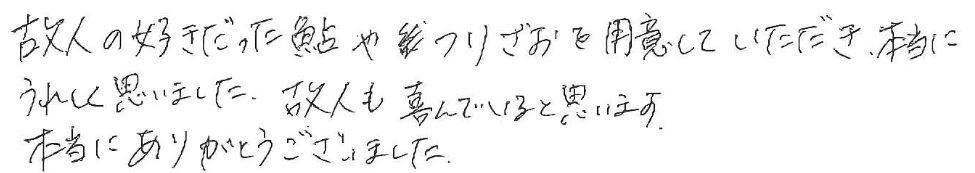 故人の好きだった鮎や釣つりざおを用意していただき、本当に
うれしく思いました。故人も喜んでいると思います。
本当にありがとうございました。